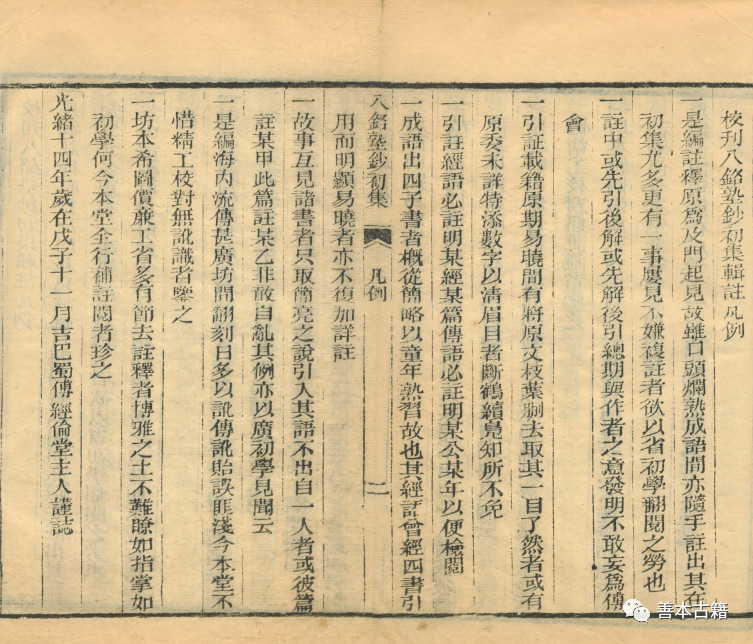 校刊八銘塾鈔初集輯註凡例
一是編註釋原爲及門起見故雖口頭爛熟成語間亦隨手註出其在
初集尤多更有一事屢見不嫌複註者欲以省初學翻閱之勞也
一註中或先引後解或先解後引總期與作者之意發明不敢妄爲傅
會
一引証載籍原期易曉間有將原文枝葉刪去取其一目了然者或有
原委未詳特添數字以清眉目者斷鶴續鳧知所不免
一引註經語必註明某經某篇傳語必註明某公某年以便檢閱
一成語出四子書者概從簡略以童年熟習故也其經語曾經四書引
八銘塾鈔初集
凡例
二
用而明顯易曉者亦不復加詳註
一故事互見諸書者只取簡亮之說引入其語不出自一人者或彼篇
註某甲此篇註某乙非敢自亂其例亦以廣初學見聞云
一是編海内流傳甚廣坊間翻刻日多以訛傳訛貽誤匪淺今本堂不
惜精工校對無訛識者鑒之
一坊本希圖價亷工省多有節去註釋者博雅之士不難瞭如指掌如
初學何今本堂全行補註閱者珍之
光緒十四年歲在戊子十一月吉巴蜀傳經倫堂主人謹誌
善本古籍